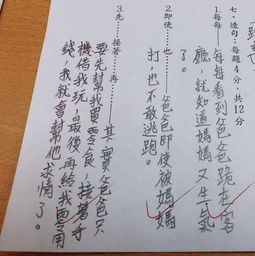 七、造句：每題4分，共12分
1.每每——每每看到爸爸跪在客
廳，就知道媽媽又生氣
了。
2.即使……也——爸爸即使被媽媽
打，也不敢逃跑。
3.先……接著……再……——其實爸爸只
要先幫我買零食，接著手
機借我玩，最後再給我零用
錢，我就會幫他求情了。